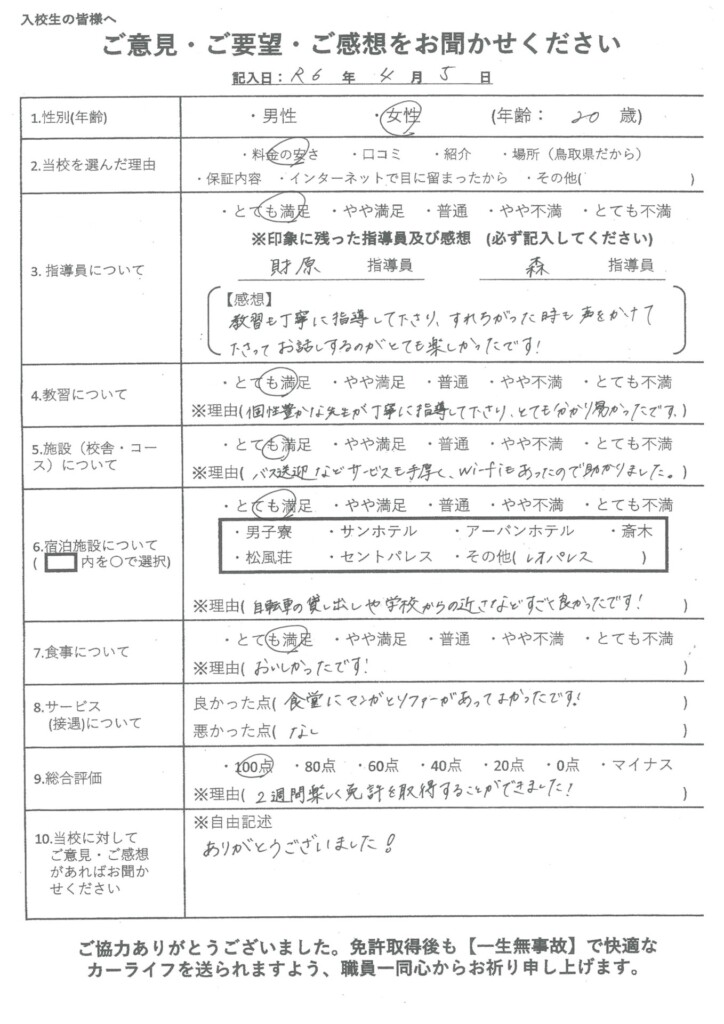 入校生の皆様へ
ご意見・ご要望・ご感想をお聞かせください
記入日: R6 年 4 月 5 日
1.性別(年齢) ・男性 ・女性 (年齢： 20 歳)
2.当校を選んだ理由 ・料金の安さ ・口コミ ・紹介 ・場所（鳥取県だから）
・保証内容 ・インターネットで目に留まったから ・その他( )
3. 指導員について ・とても満足 ・やや満足 ・普通 ・やや不満 ・とても不満
※印象に残った指導員及び感想 (必ず記入してください)
財原 指導員 森 指導員
【感想】
教習も丁寧に指導して下さり、すれちがった時も声をかけて
下さってお話しするのがとても楽しかったです!
4.教習について ・とても満足 ・やや満足 ・普通 ・やや不満 ・とても不満
※理由(個性豊かな先生が丁寧に指導して下さり、とても分かり易かったです。)
5.施設（校舎・コース）について ・とても満足 ・やや満足 ・普通 ・やや不満 ・とても不満
※理由(バス送迎などサービスも手厚く、Wi-fiもあったので助かりました。)
6.宿泊施設について ・とても満足 ・やや満足 ・普通 ・やや不満 ・とても不満
( 内を○で選択)
・男子寮 ・サンホテル ・アーバンホテル ・斎木
・松風荘 ・セントパレス ・その他(レオパレス )
※理由(自転車の貸し出しや学校からの近さなどすごく良かったです! )
7.食事について ・とても満足 ・やや満足 ・普通 ・やや不満 ・とても不満
※理由(おいしかったです! )
8.サービス
(接遇)について
良かった点(食堂にマンガとソファーがあってよかったです! )
悪かった点(なし )
9.総合評価 ・100点 ・80点 ・60点 ・40点 ・20点 ・0点 ・マイナス
※理由(2週間楽しく免許を取得することができました! )
10.当校に対して
ご意見・ご感想
があればお聞か
せください
※自由記述
ありがとうございました!
ご協力ありがとうございました。免許取得後も【一生無事故】で快適な
カーライフを送られますよう、職員一同心からお祈り申し上げます。